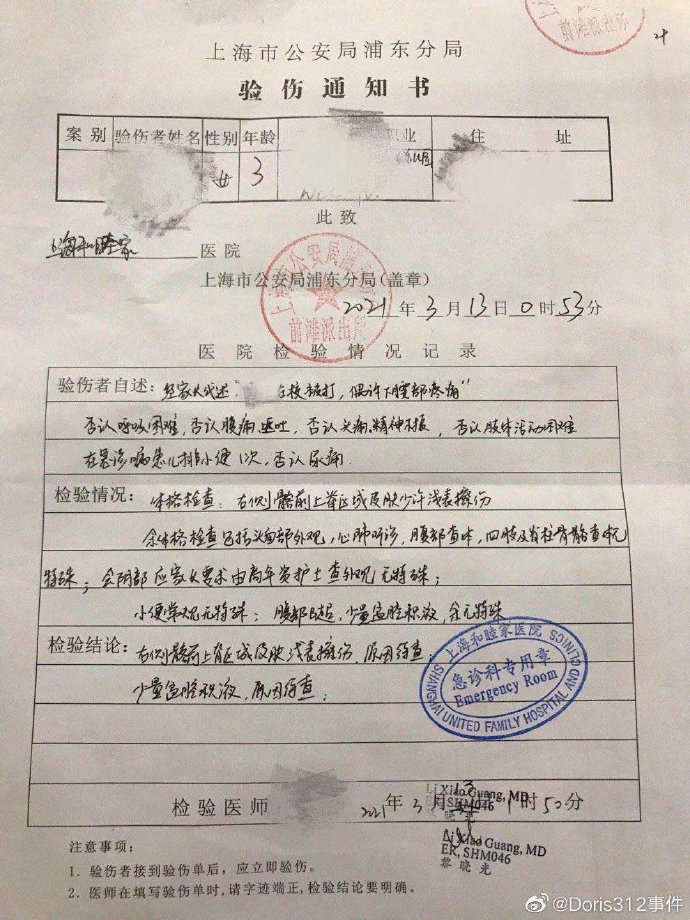 上海市公安局浦东分局
验伤通知书
案别 验伤者姓名 性别 年龄 职业 住址
女 3
此致
上海和睦家 医院
上海市公安局浦东分局(盖章)
2021年3月13日0时53分
医院检验情况记录
验伤者自述: 经家长代述" 在校被打,偶诉下腹部疼痛"
否认呼吸困难,否认腹痛、呕吐,否认头痛、精神不振,否认肢体活动困难
在急诊喂患儿排小便1次,否认尿痛
检验情况: 体格检查:右侧髂前上脊区域皮肤少许浅表擦伤
余体格检查包括头面部外观,心肺听诊,腹部查体,四肢及脊柱骨骼查体无
特殊;会阴部应家长要求由高年资护士查外观无特殊;
小便常规无特殊;腹部B超:少量盆腔积液,余无特殊
检验结论: 右侧髂前上脊区域皮肤浅表擦伤,原因待查;
少量盆腔积液,原因待查;
上海和睦家医院
急诊科专用章
Emergency Room
SHANGHAI UNITED FAMILY HOSPITAL AND CLINICS
检验医师 2021年3月13日1时50分
Li Xiao Guang, MD
ER, SHM046
黎晓光
注意事项:
1. 验伤者接到验伤单后,应立即验伤。
2. 医师在填写验伤单时,请字迹端正,检验结论要明确。
@Doris312事件